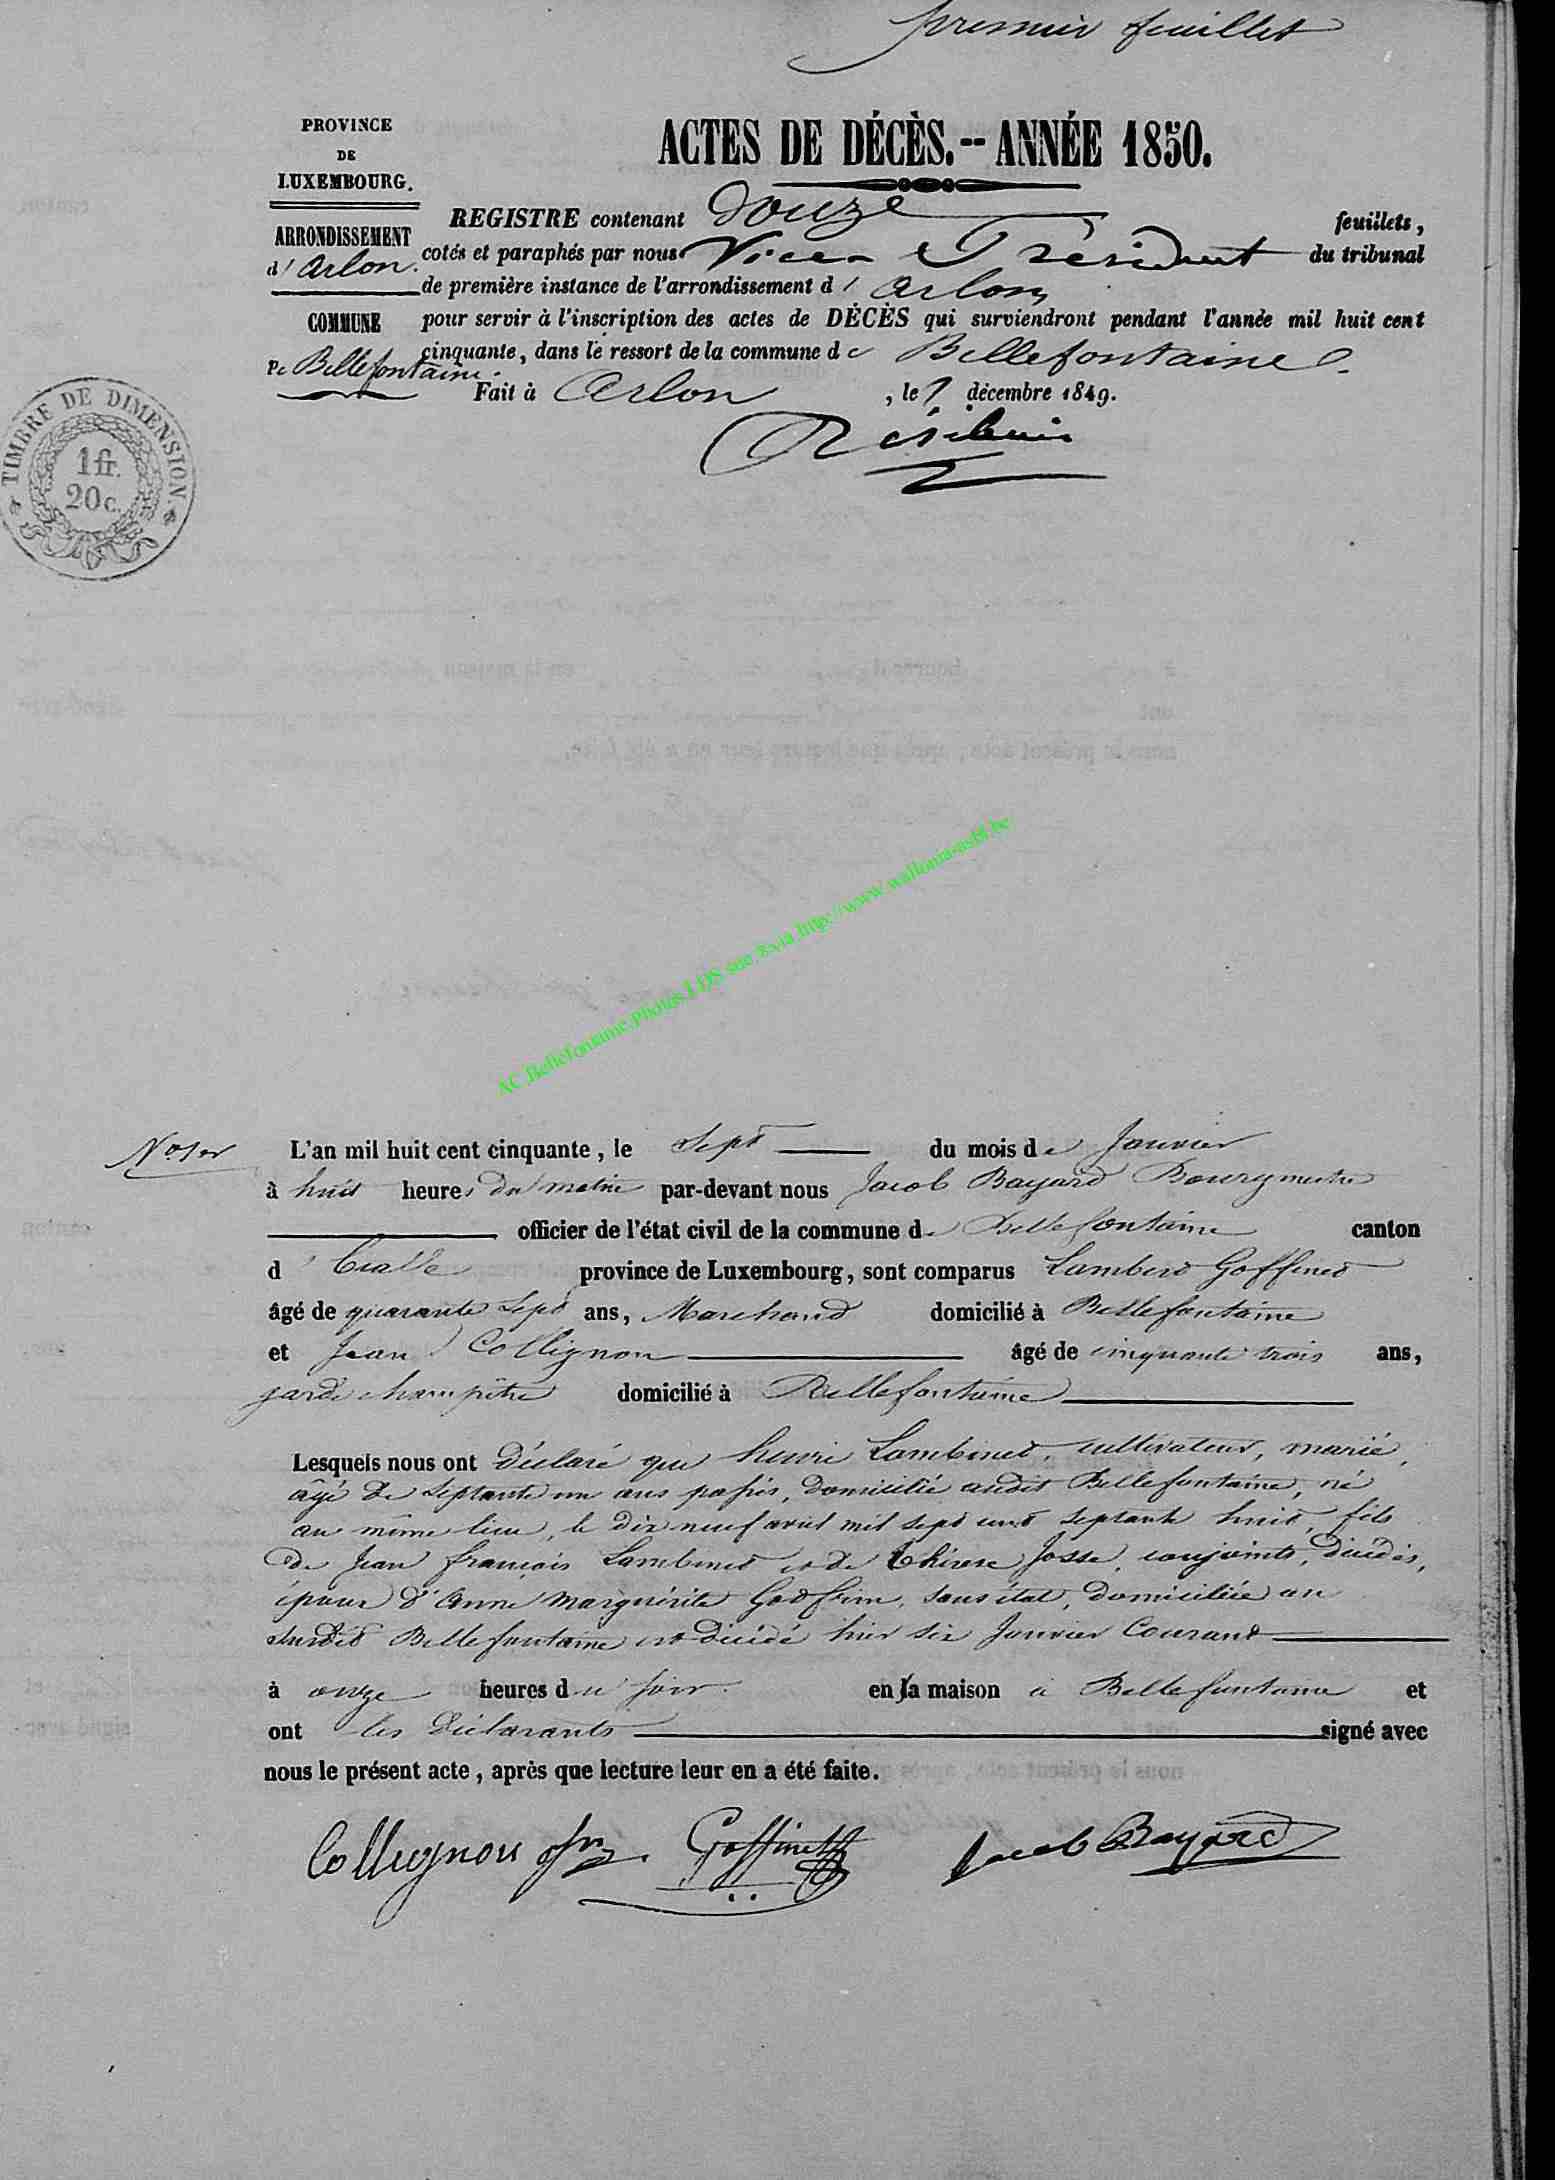 premier feuillet
PROVINCE
DE
LUXEMBOURG.
ARRONDISSEMENT
d'Arlon.
COMMUNE
De Bellefontaine.
ACTES DE DÉCÈS.-- ANNÉE 1850.
REGISTRE contenant douze feuillets,
cotés et paraphés par nous Vice-Président du tribunal
de première instance de l'arrondissement d'Arlon,
pour servir à l'inscription des actes de DÉCÈS qui surviendront pendant l'année mil huit cent
cinquante, dans le ressort de la commune de Bellefontaine.
Fait à Arlon, le 7 décembre 1849.
TIMBRE DE DIMENSION
1 fr.
20 c.
AC Bellefontaine, Photos LDS sue 8 via http://www.wallonia-asbl.be
No 1er
L'an mil huit cent cinquante, le Sept du mois de Janvier
à huit heures du matin par-devant nous Jacob Bayard Bourgmestre
officier de l'état civil de la commune de Bellefontaine canton
d'Etalle province de Luxembourg, sont comparus Lambert Goffinet
âgé de quarante Sept ans, Marchand domicilié à Bellefontaine
et Jean Collignon âgé de cinquante trois ans,
garde champêtre domicilié à Bellefontaine
Lesquels nous ont déclaré que henri Lambinet, cultivateur, marié,
âgé de Septante un ans passés, domicilié audit Bellefontaine, né
au même lieu, le dix neuf avril mil sept cent septante huit, fils
de Jean françois Lambinet et de thérese Josse, conjoints, décédés,
époux d'anne marguérite Godfrin, sans état, domiciliée au
susdit Bellefontaine est décédé hier six Janvier Courant
à onze heures du soir en la maison à Bellefontaine et
ont les déclarants signé avec
nous le présent acte, après que lecture leur en a été faite.
Collignon Goffinet Jacob Bayard